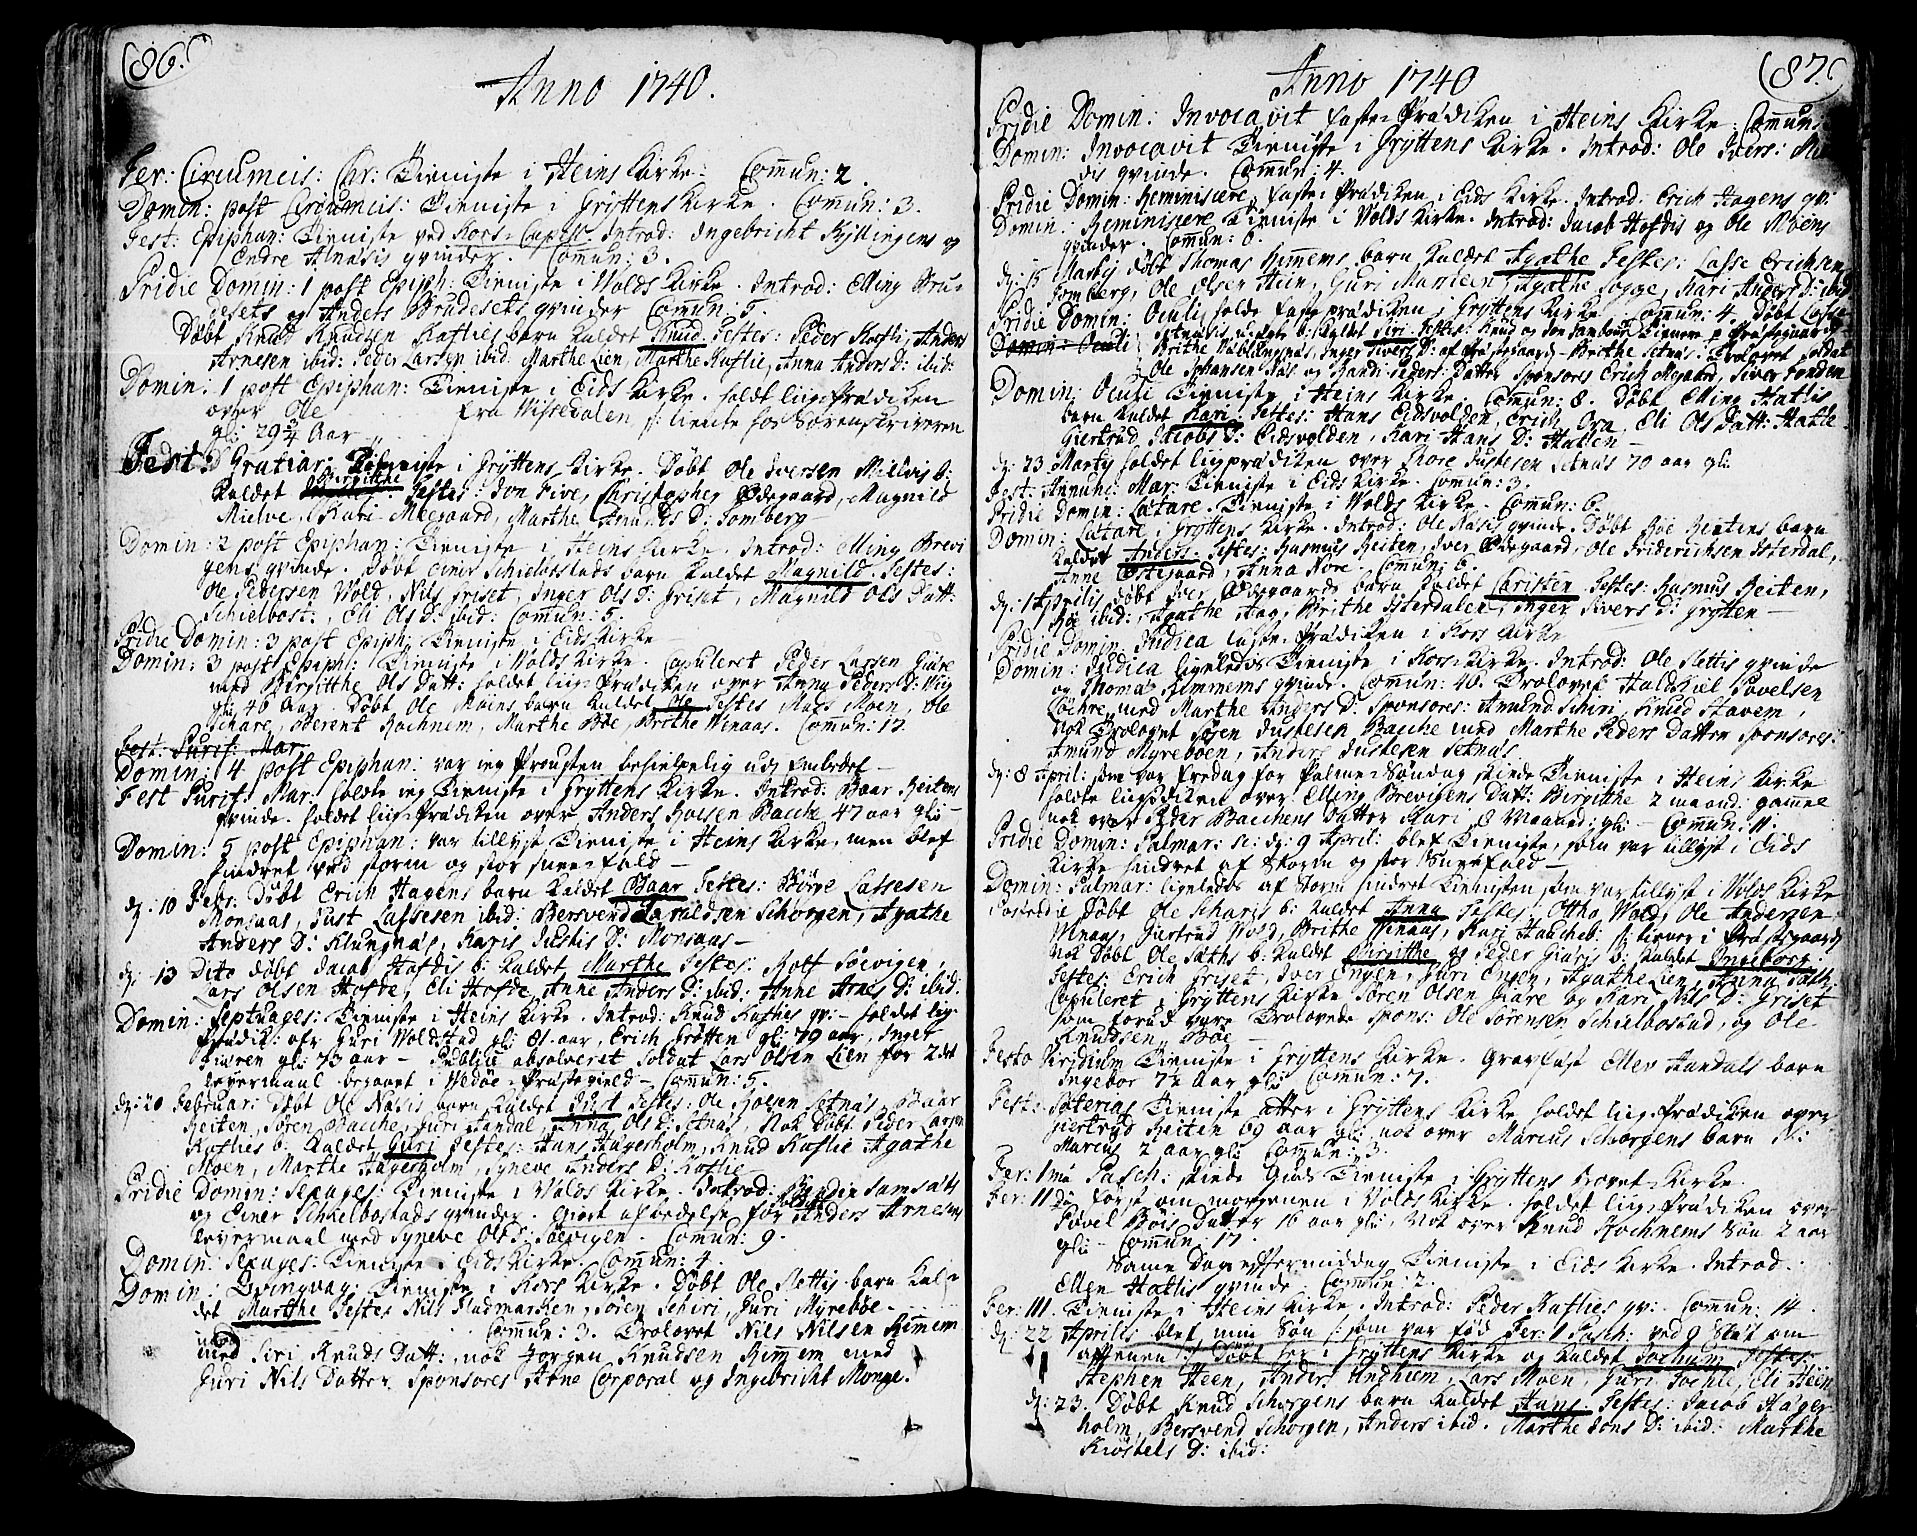 86.
Anno 1740.
Fer: Circumcis: Chr: Tieniste i Heins Kirke. Com̄un: 2.
Domin: post Circumcis: Tieniste i Gryttens Kirke. Com̄un: 3.
Fest: Epiphan: Tieniste ved Kors-Capell. Introd: Ingebricht Kyllingens og
Endre qvinder. Com̄un: 3.
Pridie Domin: 1 post Epiph: Tieniste i Volds Kirke. Introd: Elling Bru-
desets og Anders Brudesets qvinder Com̄un: 5.
Døbt Knud Knudsen Kaflies barn kaldet Knud Testes: Peder Kafli, Anders
Arnesen ibid: Peder Larsen ibid. Marthe Lien, Marthe Kaflie, Anna Anders D: ibid:
Domin: 1 post Epiphan: Tieniste i Eids Kirke. holdt liigprædiken
over Ole fra Vistdalen, tiente hos Sorenskriveren
gl: 29 3/4 Aar
Fest: Gratiar: Tieniste i Gryttens Kirke. Døbt Ole Iversen Mielvis b:
kaldet Birgitthe Testes: Jon Five, Christopher Ødegaard, Magnild
Mielve, Kari Meegaard, Marthe Amunds D: Tomberg
Domin: 2 post Epiphan: Tieniste i Heins Kirke. Introd: Elling Brevi-
gens qvinde. Døbt Einer Schielbostads barn kaldet Magnild. Testes:
Ole Pedersen Vold, Nils Griset, Inger Ols D: Griset, Magnild Ols Datt:
Schielbost:, Eli Ols D: ibid: Com̄un: 5.
Pridie Domin: 3 post Epiph: Tieniste i Eids Kirke
Domin: 3 post Epiph: Tieniste i Volds Kirke. Copuleret Peder Larsen Giære
med Birgitthe Ols Datt: holdet liig-Prædiken over Anna Peders D: Viig
gl: 40 Aar. Døbt Ole Moens barn kaldet Ole Testes Mats Moen, Ole
Schare, Berent Kochnem, Marthe Bøe, Brithe Venaas. Com̄un: 13.
Fest: Purif: Mar
Domin: 4 post Epiphan: var ieg Prousten behielpelig udj Embedet
Fest Purif: Mar. holdte ieg Tieniste i Gryttens Kirke. Introd: Baar Reitens
qvinde. holdet liig-Prædiken over Anders Hoesen Bache 47 aar gl:
Domin: 5 post Epiphan: var tillyst Tieniste i Heins Kirke, men blef
hindret ved storm og stor snee-fald
d: 10 Febr: Døbt Erich Hagens barn kaldet Baar Testes: Børge Lassesen
Monsaas, Just Lassesen ibid: Bersvend Haraldsen Schorgen, Agathe
Anders D: Klungnæs, Karis Justis D: Monsaas
d: 13 Dito døbt Jacob Hofdis b: kaldet Marthe Testes: Rolf Søevigen,
Lars Olsen Hofde, Eli Hofde, Anne Anders D: ibid: Anne Arnes D: ibid.
Domin: Septuages: Tieniste i Heins Kirke. Introd: Knud Kaflies qv: holdet lig-
prædik: over Guri Voldstad gl: 81 aar, Erich Grøtten gl: 79 aar, Inger
gl: 73 aar - Publice absolveret Soldat Lars Olsen Lien for 2det
leyermaal begaaet i Vedøe-Præstegield. Com̄un: 5.
d: 20 Februar: døbt Ole Næsis barn kaldet Just Testes: Ole Hoesen Setnæs, Baar
Reiten, Søren Bache, Guri Handal, Anna Ols D: Setnæs, Nok Døbt Peder Larsen
Kaflies b: kaldet Guri Testes: Hans Hagerholm, Knud Kaflie Agathe
Moen, Marthe Hagerholm, Syneve Anders D: Kaflie
Pridie Domin: Sexages: Tieniste i Volds Kirke. Introd:
og Einer Schielbostads qvinder. Giort afbedelse for Anders Arnesens
leyermaal med Syneve Ols D: Søevigen. Com̄un: 9.
Domin: Sexages: Tieniste i Eids Kirke. Com̄un: 4.
Domin: Qvinqvag: Tieniste i Kors Kirke. Døbt Ole Slettis barn kal-
det Marthe Testes Nils Fladmarchen, Søren Schiri, Guri Myrebøe.
Com̄un: 3. Trolovet Nils Nilsen Rem̄em
med Siri Knuds Datt:, nok Jorgen Knudsen Rem̄em med
Guri Nils Datter. Sponsores Arne Corporal og Ingebricht Monge.
87.
Anno 1740
Pridie Domin: Invocavit faste-Prædiken i Heins Kirke. Com̄un:
Domin: Invocavit Tieniste i Gryttens Kirke. Introd: Ole Ivers:
qvinde. Com̄un: 4.
Pridie Domin: Reminiscere, faste-Prædiken i Eids Kirke. Introd: Erich Hagens qv:
Domin: Reminiscere Tieniste i Volds Kirke. Introd: Jacob Hofdis og Ole Moens
qvinder. Com̄un: 6.
d: 15 Martij døbt Thomas Rem̄ems barn kaldet Agathe Testes: Lasse Erichsen
Tomberg, Ole Olsen Hein, Guri Marstein, Agathe Sogge, Kari Anders D: ibid
Pridie Domin: Oculi holdt fasteprædiken i Gryttens Kirke Com̄un: 4. Døbt Lasse
Domin: Oculi
kaldet Siri Testes: Knud og Jon Tambour Tienere paa Præstegaard
Brithe Væblungsnæs, Inger Sivers D: af Præstegaard, Brithe Setnæs. Trolovet soldat
Ole Johansen Næs og Randi Peders: Datter Sponsores Erich Mgaard, Siver Sonden
Domin: Oculi Tieniste i Heins Kirke. Com̄un: 8. Døbt Elling Hatlis
barn kaldet Kari. Testes: Hans Eidsvolden, Erich Ora, Eli Ols Datt: Hatle
Giertrud Jacobs D: Eidsvolden, Kari Hans D: Hatlen
d: 23 Martij holdet liigprædiken over Thore Justesen Setnæs 70 aar gl:
Fest: Annunc: Mar: Tieniste i Eids Kirke. Com̄un: 3.
Pridie Domin: Lætare. Tieniste i Volds Kirke. Com̄un: 6.
Domin: Lætare i Gryttens Kirke. Introd: Ole Næsis qvinde. Døbt Roe Reitens barn
kaldet Anders. Testes: Rasmus Reiten, Iver Ødegaard, Ole Friderichsen Isterdal,
Anne Østigaard, Anna Nore. Com̄un: 6.
d: 1 Aprilis døbt Iver Ødegaards barn kaldet Christen Testes: Rasmus Reiten,
Roe ibid:, Agathe Aag, Brithe Isterdalen, Inger Sivers D: Grytten
Pridie Domin Judica faste-Prædiken i Kors Kirke
Domin: Judica ligeledes Tieniste i Kors Kirke. Introd: Ole Slettis qvinde
og Thomas Rem̄ems qvinde. Com̄un: 40. Trolovet Haldkiel Povelsen
Lochre, med Marthe Anders D: Sponsores: Amund Schiri, Knud Stavem,
Nok Trolovet Søren Justesen Bache med Marthe Peders Datter Sponsores:
Amund Myreboen, Anders Justesen Setnæs.
d: 8 April: som var fredag for Palme-Søndag skeede Tieniste i Heins Kirke
holdte liigprædiken over Elling Brevigens Datt: Birgitthe 2 maand: gammel
nok over Peder Bachens Datter Kari 8 Maaned: gl: Com̄un: 11:
Pridie Domin: Palmar: sc: d: 9 April: blef Tieniste, som var tillyst i Eids
Kirke hindret af Storm og stor Sneefald
Domin: Palmar: ligeledes af Storm hindret Tienisten, som var tillyst i Volds Kirke
Postridie Døbt Ole Scharis b: kaldet Anna Testes: Ottho Vold, Ole Andersen
Venaas, Giertrud Vold, Brithe Venaas, Kari tiener i Præstegaard
Nok Døbt Ole Sæths b: kaldet Birgitthe og Peder Giæris b: kaldet Ingeborg.
Testes: Erich Griset, Iver Engen, Guri Engen, Agathe Lien, Anna Sæth
Copuleret i Gryttens Kirke Søren Olsen Giære og Kari Nils D: Griset
som forud vare Trolovede Spons: Ole Sørensen Schielbostad, og Ole
Knudsen Bøe
Festo Viridium Tieniste i Gryttens Kirke. Gravfæst Ellev Handals barn
Ingebor 7 1/2 Aar gl: Com̄un: 7.
Festo Soterias Tieniste atter i Gryttens Kirke holdet liig-Prædiken over
Giertrud Reiten 69 aar gl:, nok over Marcus Schorgens barn
Marcus 2 aar gl: Com̄un: 3.
Fer: 1mo Pasch: skeede Guds Tieniste i Gryttens hovet-Kirke.
Fer: 11da først om morgenen i Volds Kirke. holdet liig-Prædiken over
Povel Bøis Datter 16 aar gl:, Nok over Knud Kochnems Søn 2 aar
gl: Com̄un: 17.
Sam̄e Dag eftermiddag Tieniste i Eids Kirke. Introd.
Ellen Hatlis qvinde. Com̄un: 2.
Fer: 111. Tieniste i Heins Kirke. Introd: Peder Kaflies qv: Com̄un: 14.
d: 22 Aprilis blef min Søn /: som var fød Fer: 1 Pasch: ved 9 Slet om
aftenen :/ Døbt her i Gryttens Kirke og kaldet Jochum Testes:
Stephen Heen, Anders Unhiem, Lars Moen, Guri Sochle, Eli Heen
d: 23. Døbt Knud Schorgens barn kaldet Hans. Testes: Jacob Hager-
holm, Bersvend Schorgen, Anders ibid. Marthe Jons D: ibid: Marthe
Kiøstels D: ibid: